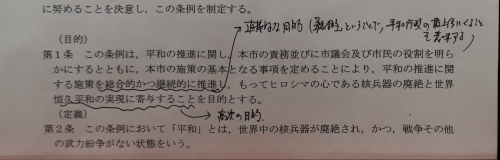 に努めることを決意し、この条例を制定する。
(目的)
第1条 この条例は、平和の推進に関し、本市の責務並びに市議会及び市民の役割を明ら
かにするとともに、本市の施策の基本となる事項を定めることにより、平和の推進に関
する施策を総合的かつ継続的に推進し、もってヒロシマの心である核兵器の廃絶と世界
恒久平和の実現に寄与することを目的とする。
高次の目的.
(定義)
第2条 この条例において「平和」とは、世界中の核兵器が廃絶され、かつ、戦争その他
の武力紛争がない状態をいう。